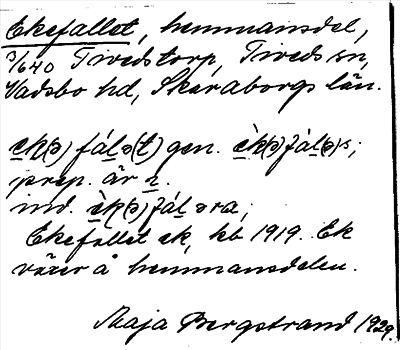 Ekefallet, hemmansdel,
3/640 Tivedstorp, Tiveds sn,
Vadsbo hd, Skaraborgs län.
èk(ə) fálə(t) gen. èk(ə)fál(ə)s;
prep. är
inv. èk(ə)fáləra;
Ekefallet ek, kb 1919. Ek
växer å hemmansdelen.
Maja Bergstrand 1929.